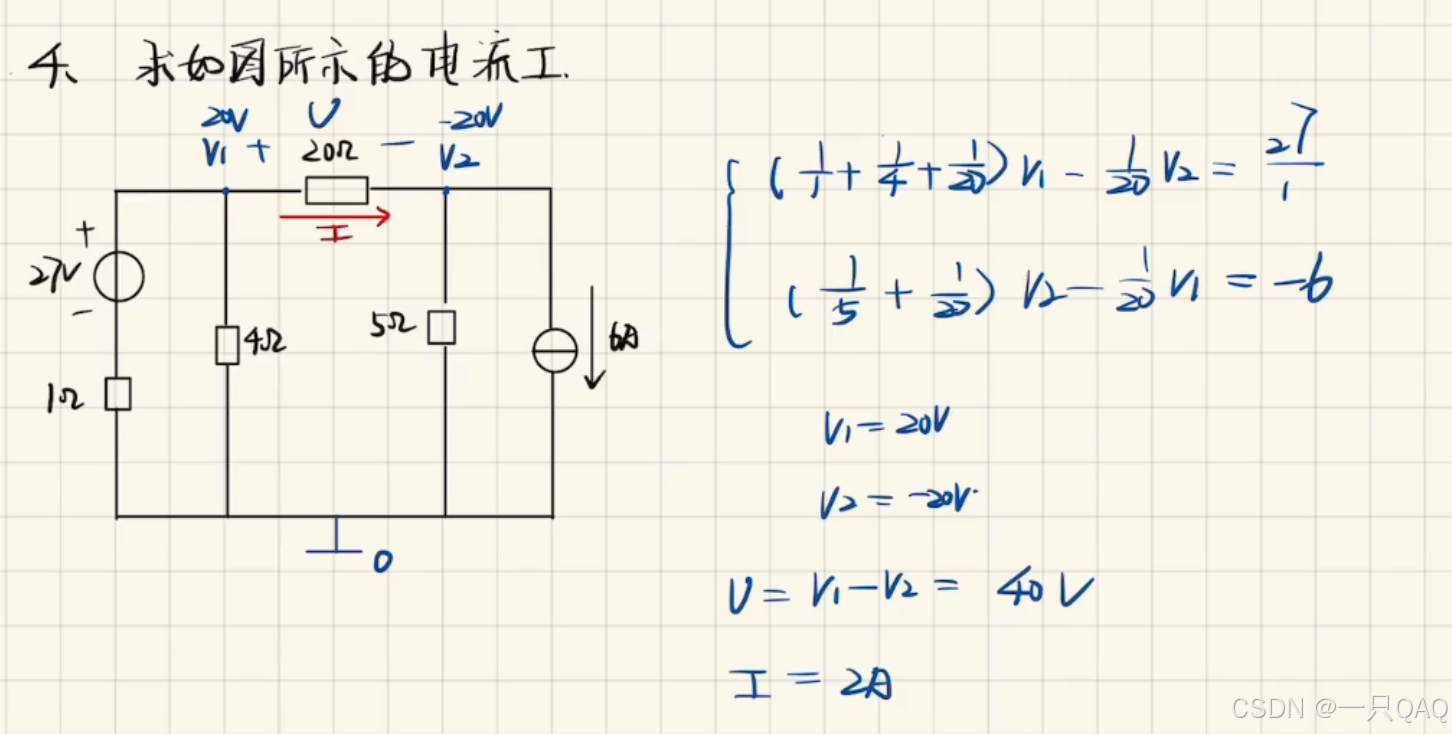 4、求如图所示的电流I.
20V U -20V
V1 + 20Ω - V2
I
+
27V
-
4Ω
5Ω
6A
1Ω
0
(1/1 + 1/4 + 1/20) V1 - 1/20 V2 = 27/1
(1/5 + 1/20) V2 - 1/20 V1 = -6
V1 = 20V
V2 = -20V.
U = V1 - V2 = 40V
I = 2A
CSDN @一只QAQ